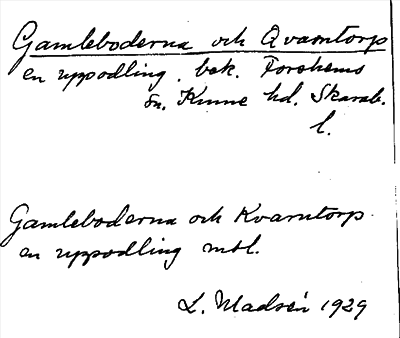 Gamleboderna och Qvarntorp
en uppodling, bek. Forshems
sn. Kinne hd. Skarab.
l.
Gamleboderna och Kvarntorp
en uppodling mbl.
L. Madsén 1929